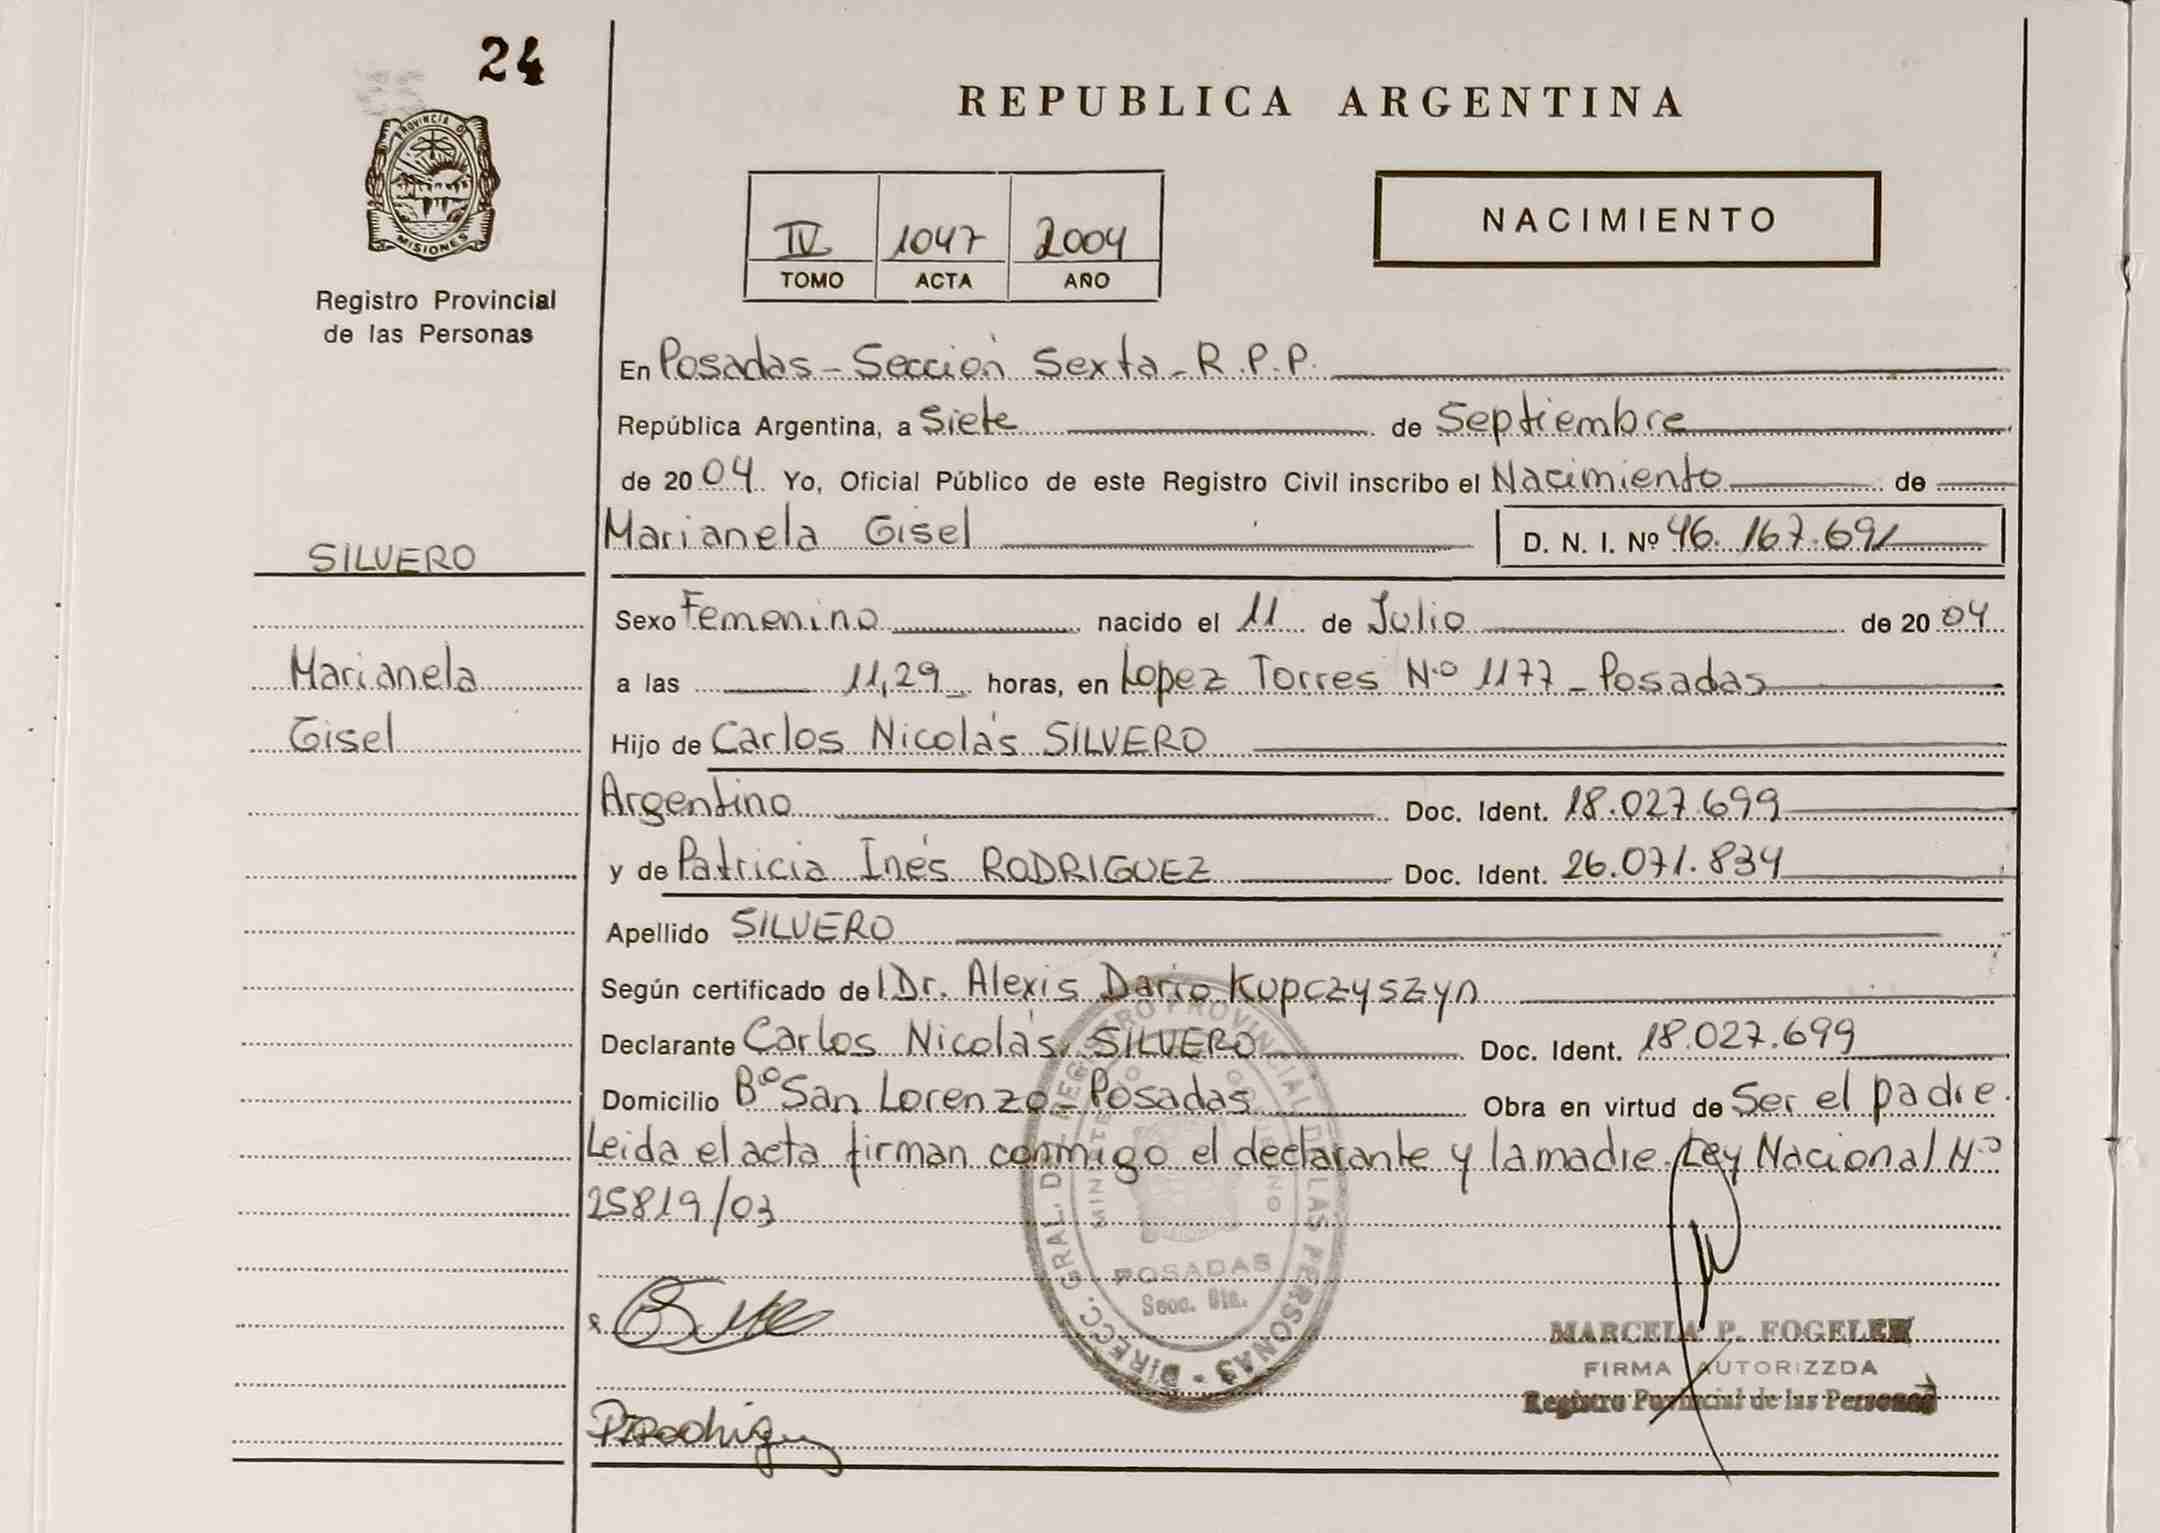 24
PROVINCIA DE
MISIONES
Registro Provincial
de las Personas
REPUBLICA ARGENTINA
IV 1047 2004
TOMO ACTA AÑO
NACIMIENTO
En Posadas - Sección Sexta - R.P.P.
República Argentina, a Siete de Septiembre
de 2004. Yo, Oficial Público de este Registro Civil inscribo el Nacimiento de
Marianela Gisel D. N. I. Nº 46.167.691
SILVERO
Sexo Femenino nacido el 11 de Julio de 2004
Marianela
a las 11,29 horas, en Lopez Torres Nº 1177 - Posadas
Gisel
Hijo de Carlos Nicolás SILVERO
Argentino Doc. Ident. 18.027.699
y de Patricia Inés RODRIGUEZ Doc. Ident. 26.071.834
Apellido SILVERO
Según certificado del Dr. Alexis Darío Kupczyszyn
Declarante Carlos Nicolás SILVERO Doc. Ident. 18.027.699
Domicilio Bº San Lorenzo - Posadas Obra en virtud de Ser el padre.
Leida el acta firman conmigo el declarante y la madre. Ley Nacional Nº
25819/03
DIRECC. GRAL. DEL REGISTRO PROVINCIAL DE LAS PERSONAS
MINISTERIO DE GOBIERNO
POSADAS
Secc. 6ta.
MARCELA P. FOGELER
FIRMA AUTORIZZDA
Registro Provincial de las Personas
PIRodrigu